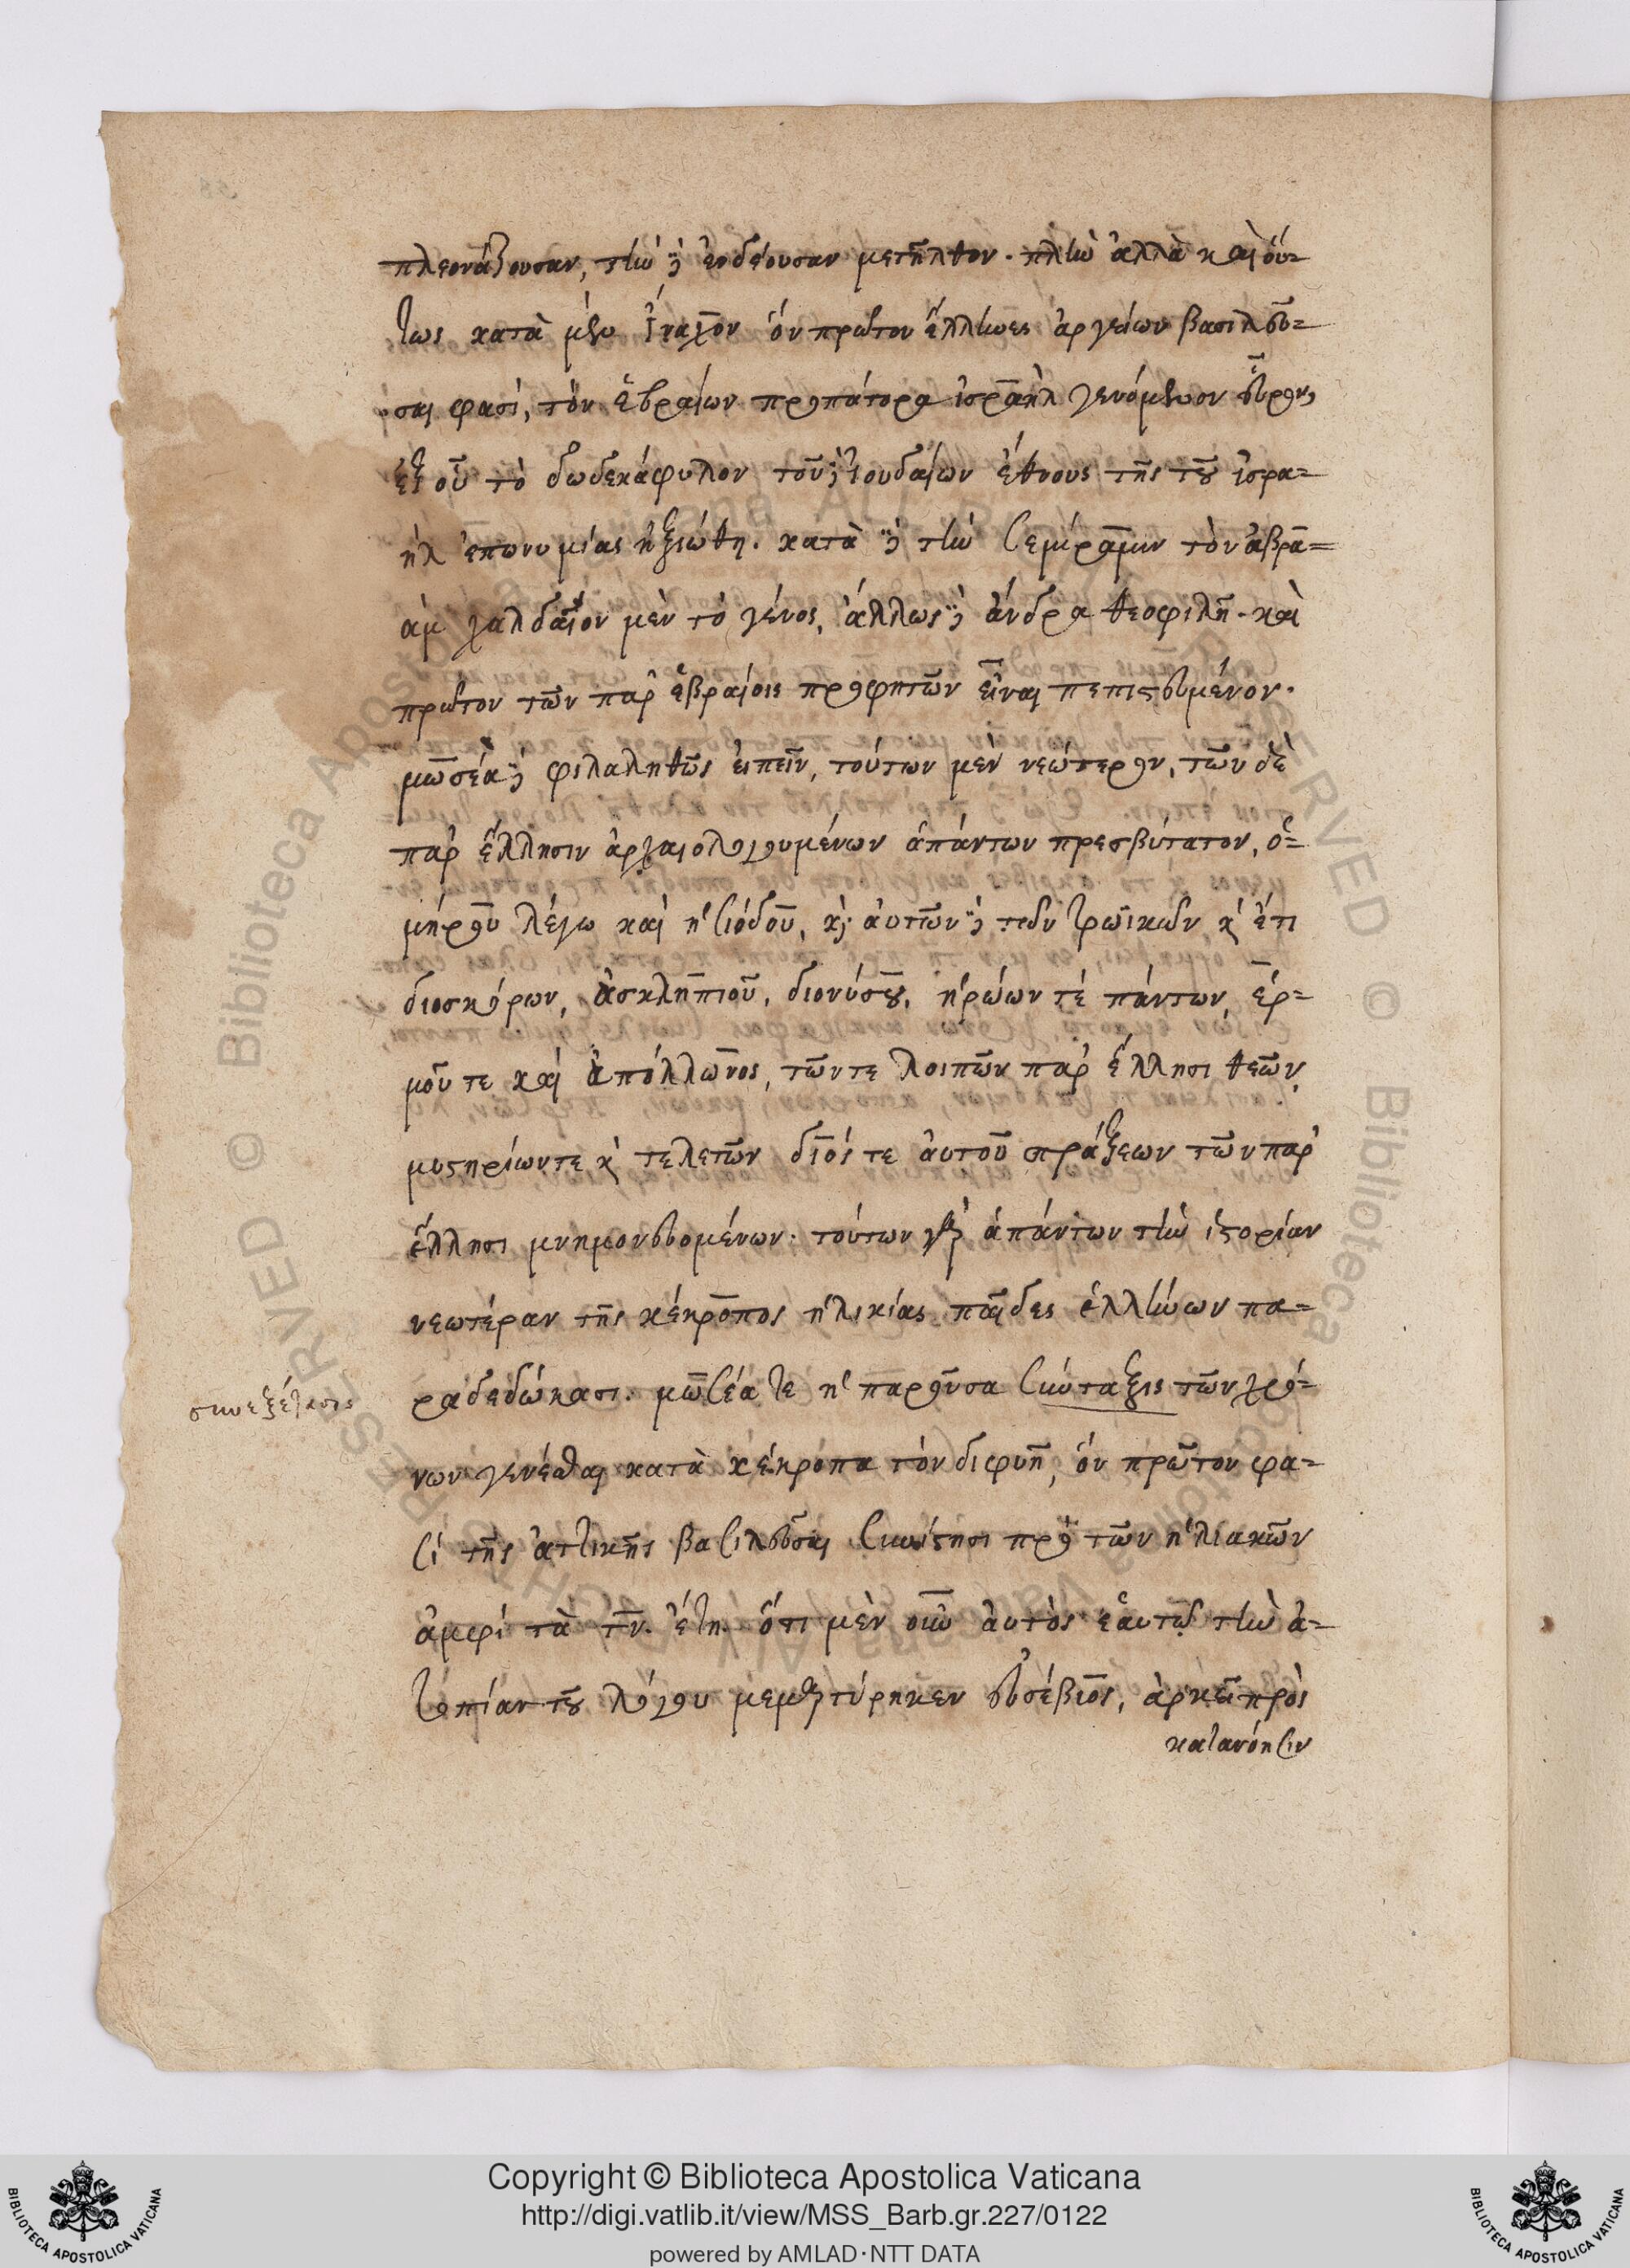 πλεονάζουσαν, τὴν δὲ ἐνδέουσαν μετῆλθον. πλὴν ἀλλὰ καὶ οὕ=
τως κατὰ μὲν ἴναχον ὃν πρῶτον ἕλληνες ἀργείων βασιλεῦ=
σαι φασὶ, τὸν ἑβραίων προπάτορα ἰσραὴλ γενόμενον εὗρον,
ἐξ οὗ τὸ δωδεκάφυλον τοῦ ἰουδαίων ἔθνους τῆς τοῦ ἰσρα=
ὴλ ἐπωνυμίας ἠξιώθη. κατὰ δὲ τὴν σεμίραμιν τὸν ἀβρα=
ὰμ χαλδαῖον μὲν τὸ γένος, ἄλλως δὲ ἄνδρα θεοφιλῆ. καὶ
πρῶτον τῶν παρ' ἑβραίοις προφητῶν εἶναι πεπιστευμένον.
μωσέα δὲ φιλαλήθως εἰπεῖν, τούτων μὲν νεώτερον, τῶν δὲ
παρ' ἕλλησιν ἀρχαιολογουμένων ἁπάντων πρεσβύτατον, ὁ=
μήρου λέγω καὶ ἡσιόδου, καὶ αὐτῶν δὲ τῶν τρωϊκῶν καὶ ἔτι
διοσκόρων, ἀσκληπιοῦ, διονύσου, ἡρώων τὲ πάντων, ἑρ=
μοῦ τε καὶ ἀπόλλωνος, τῶν τε λοιπῶν παρ' ἕλλησι θεῶν,
μυστηρίων τε καὶ τελετῶν διός τε αὐτοῦ πράξεων τῶν παρ'
ἕλλησι μνημονευομένων. τούτων γὰρ ἁπάντων τὴν ἱστορίαν
νεωτέραν τῆς κέκροπος ἡλικίας παῖδες ἑλλήνων πα=
ραδεδώκασι. μωσέα τε ἡ παροῦσα σύνταξις τῶν χρό=
συνεξέτασις
νων γενέσθαι κατὰ κέκροπα τὸν διφυῆ, ὃν πρῶτον φα=
σὶ τῆς ἀττικῆς βασιλεῦσαι συνίστησι πρὸ τῶν ἡλιακῶν
ἀμφὶ τὰ τν. ἔτη. ὅτι μὲν οὖν αὐτὸς ἑαυτῷ τὴν ἀ=
τοπίαν τοῦ λόγου μεμαρτύρηκεν εὐσέβιος, ἀρκεῖ πρὸς
κατανόησιν
Copyright © Biblioteca Apostolica Vaticana
http://digi.vatlib.it/view/MSS_Barb.gr.227/0122
powered by AMLAD·NTT DATA
BIBLIOTECA APOSTOLICA VATICANA
BIBLIOTECA APOSTOLICA VATICANA